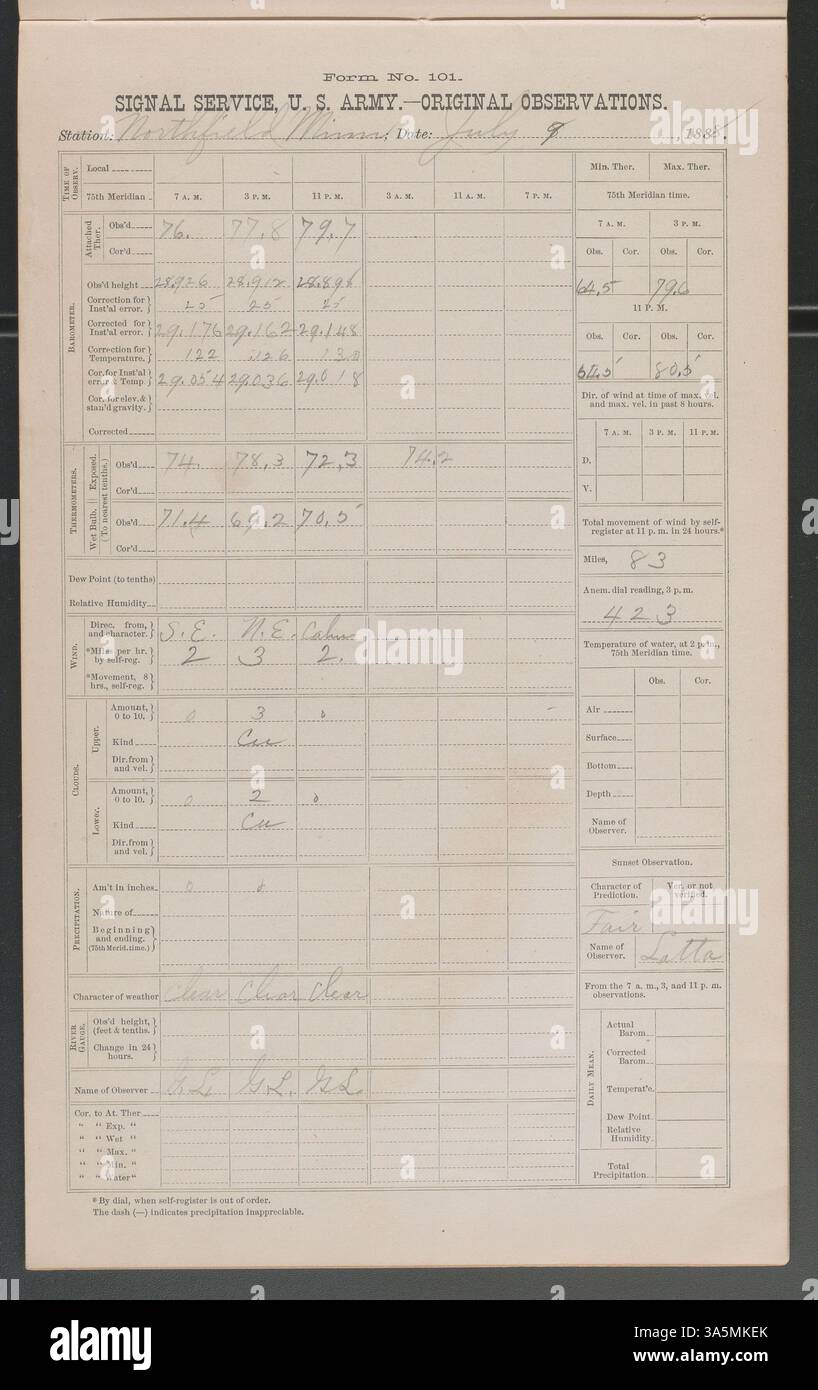 Form No. 101.
SIGNAL SERVICE, U. S. ARMY.—ORIGINAL OBSERVATIONS.
Station: Northfield Minn; Date: July 9, 188
TIME OF OBSERV.
Local
75th Meridian 7 A. M. 3 P. M. 11 P. M. 3 A. M. 11 A. M. 7 P. M.
BAROMETER.
Attached Ther.
Obs'd 76. 77.8 79.7
Cor'd
Obs'd height 28.926 28.912 28.898
Correction for Inst'al error. 25 25 25
Corrected for Inst'al error. 29.176 29.162 29.148
Correction for Temperature. 122 126 130
Cor. for Inst'al error & Temp 29.054 29.036 29.018
Cor. for elev. & stan'd gravity.
Corrected
THERMOMETERS.
Wet Bulb. || Exposed.
(To nearest tenths.)
Obs'd 74. 78.3 72.3 74.2
Cor'd
Obs'd 71.4 69.2 70.5
Cor'd
Dew Point (to tenths)
Relative Humidity
WIND.
Direc. from, and character. S.E. N.E. Calm
*Miles per hr. by self-reg. 2 3 2.
*Movement, 8 hrs., self-reg.
CLOUDS.
Upper.
Amount, 0 to 10. 0 3 0
Kind Cu
Dir. from and vel.
Lower.
Amount, 0 to 10. 0 2 0
Kind Cu
Dir. from and vel.
PRECIPITATION.
Am't in inches 0 0
Nature of
Beginning and ending. (75th Merid. time.)
Character of weather Clear Clear Clear
RIVER GAUGE.
Obs'd height, (feet & tenths.)
Change in 24 hours.
Name of Observer G.L. G.L. G.L.
Cor. to At. Ther
" " Exp. "
" " Wet "
" " Max. "
" " Min. "
" " Water "
* By dial, when self-register is out of order.
The dash (—) indicates precipitation inappreciable.
Min. Ther. Max. Ther.
75th Meridian time.
7 A. M. 3 P. M.
Obs. Cor. Obs. Cor.
64.5 79.6
11 P. M.
Obs. Cor. Obs. Cor.
64.5 80.5
Dir. of wind at time of max. vel. and max. vel. in past 8 hours.
7 A. M. 3 P. M. 11 P. M.
D.
V.
Total movement of wind by self-register at 11 p. m. in 24 hours.*
Miles, 83
Anem. dial reading, 3 p. m.
423
Temperature of water, at 2 p. m., 75th Meridian time.
Obs. Cor.
Air
Surface
Bottom
Depth
Name of Observer.
Sunset Observation.
Character of Prediction. Ver. or not verified.
Fair
Name of Observer. Latta
From the 7 a. m., 3, and 11 p. m. observations.
DAILY MEAN.
Actual Barom
Corrected Barom
Temperat'e
Dew Point
Relative Humidity
Total Precipitation
alamy
a
alamy
Image ID: 3A5MKEK
www.alamy.com